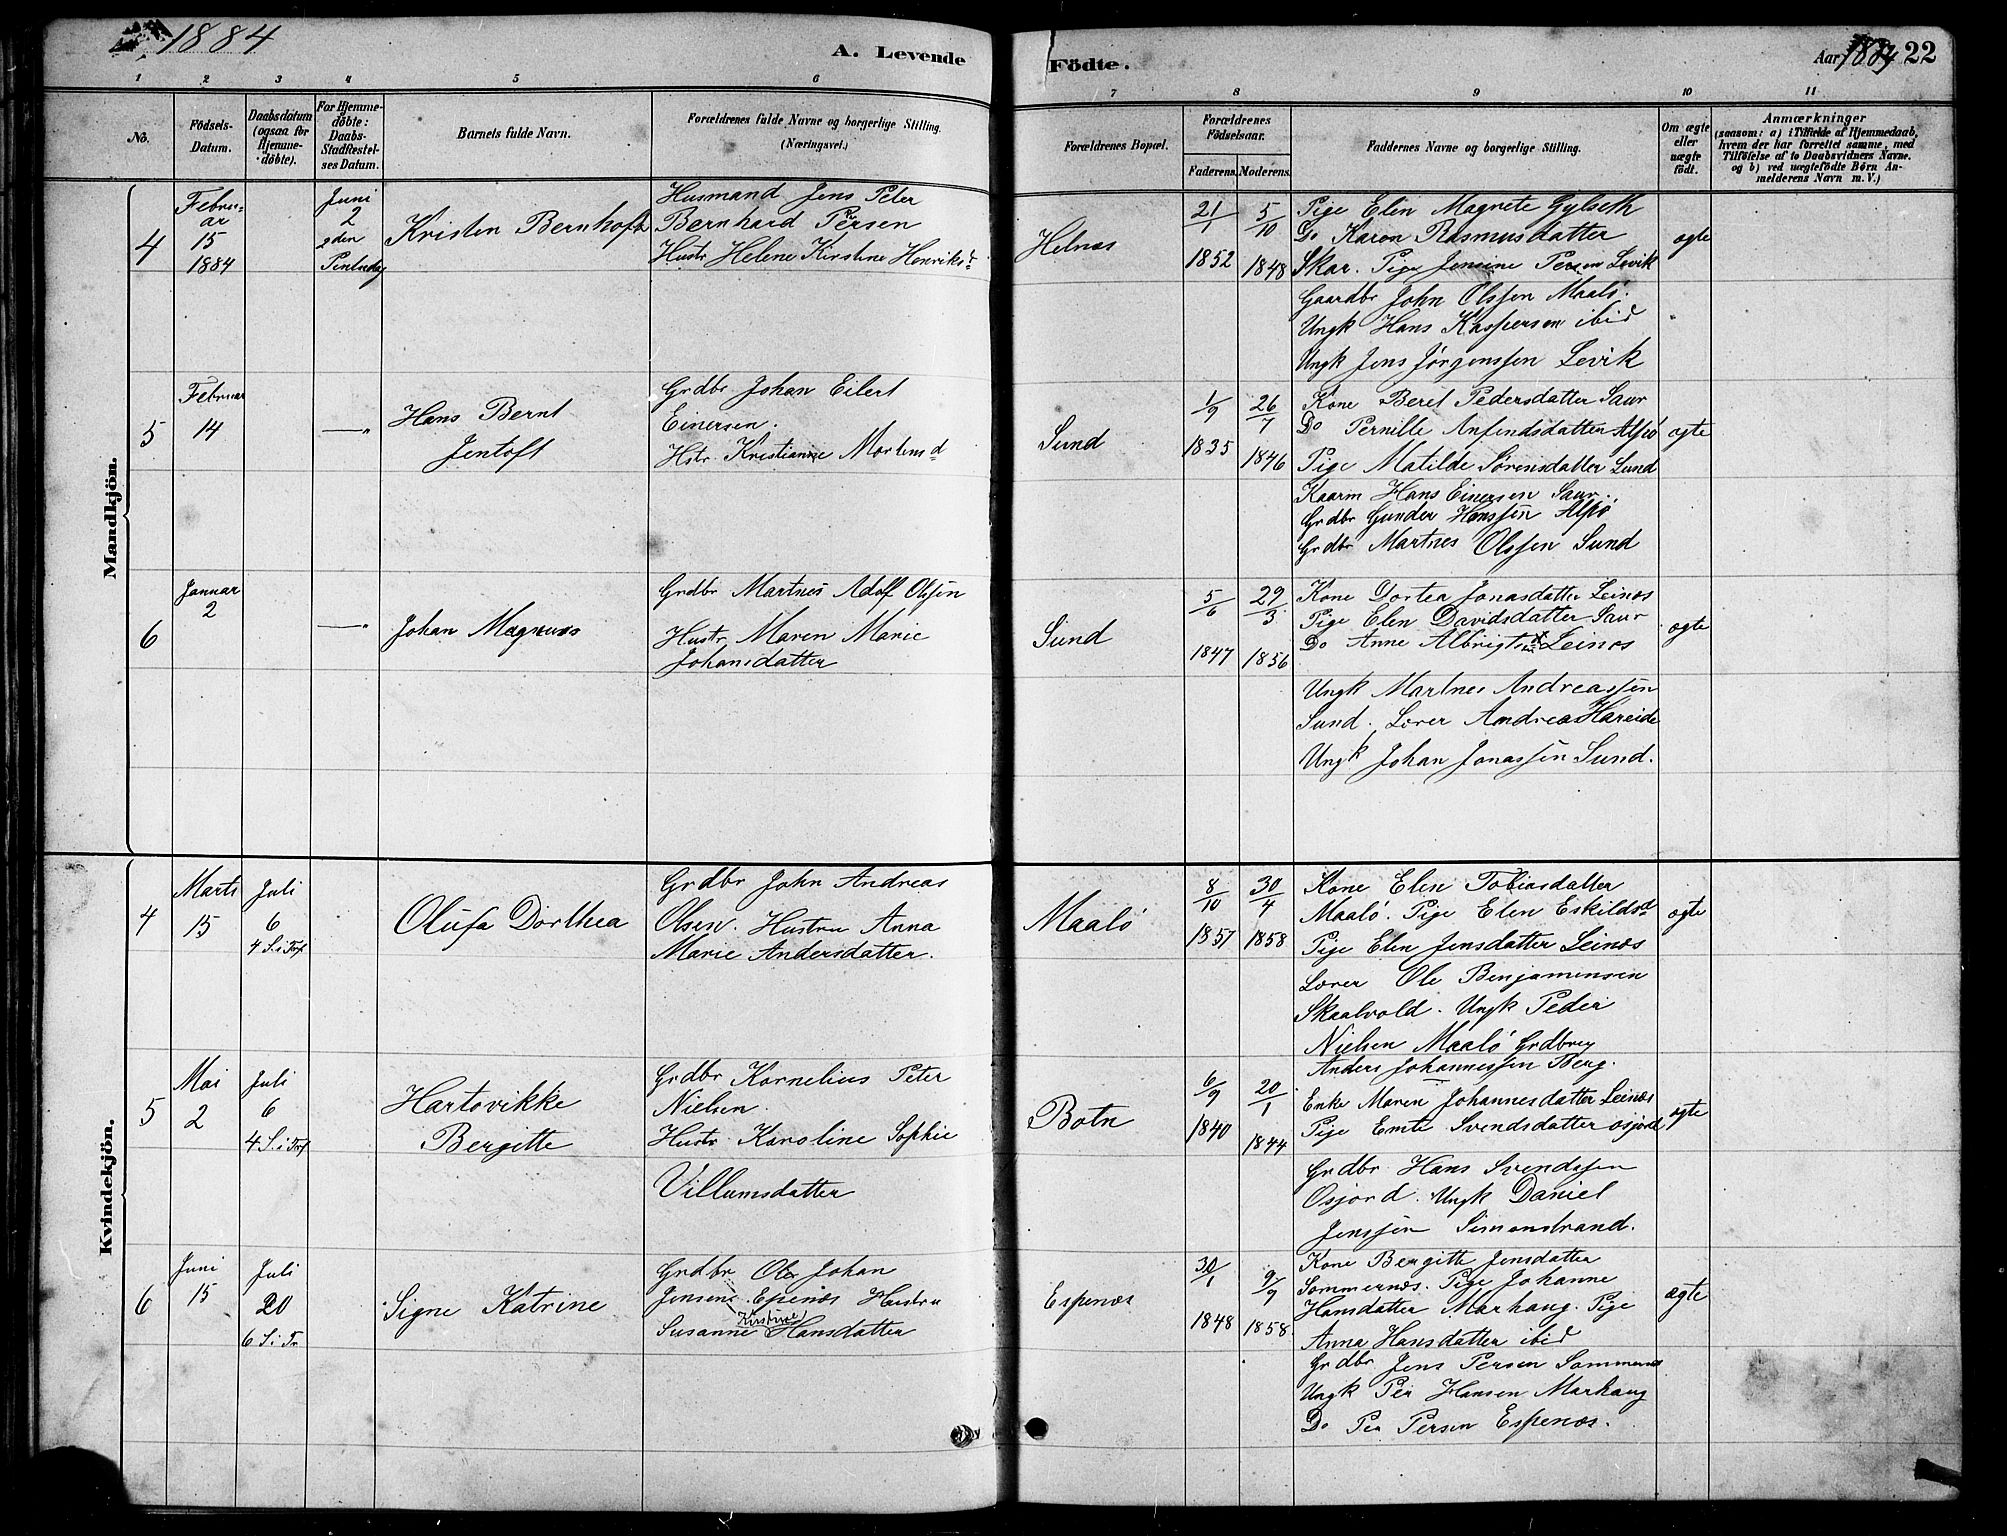 1884
A. Levende
Födte.
Aar 1884 22
1
2
3
4
5
6
7
8
9
10
11
No.
Födsels-
Datum.
Daabsdatum
(ogsaa for
Hjemme-
döbte).
For Hjemme-
döbte:
Daabs-
Stadfæstel-
ses Datum.
Barnets fulde Navn.
Forældrenes fulde Navne og borgerlige Stilling.
(Næringsvei.)
Forældrenes Bopæl.
Forældrenes
Födselsaar.
Faderens.
Moderens.
Faddernes Navne og borgerlige Stilling.
Om ægte
eller
uægte
födt.
Anmærkninger
(saasom: a) i Tilfælde af Hjemmedaab,
hvem der har forrettet samme, med
Tilföielse af to Daabsvidners Navne.
og b) ved uægtefödte Börn An-
melderens Navn m. V.)
Mandkjön.
4
Febru-
ar
15
1884
Juni
2
2den
Kristen Bernhoft
Husmand Jens Peter
Bernhard Persen
Hustr Helene Kirstine Henriksd
Helnæs
21/1
1852
5/10
1848
Pige Elen Magrete Gylseth
Do Karen Rasmusdatter
Skar. Pige Jensine Persen Levik
Gaardbr John Olssen Maalö.
Ungk Hans Kaspersen ibid
Ungk Jens Jörgenssen Levik
ægte
5
Februar
14
—"
Hans Bernt
Jentoft
Grdbr Johan Eilert
Einersen.
Hstr. Kristianne Mortensd
Sund
1/9
1835
26/7
1846
Kone Beret Pedersdatter Saur
Do Pernille Anfindsdatter Alsö
Pige Matilde Sörensdatter Sund
Kaarm Hans Einersen Saur.
Grdbr Gunder Hanssen Alsö
Grdbr Martnes Olssen Sund
ægte
6
Januar
2
—"
Johan Magnus
Grdbr Martnes Adolf Olsen
Hustr Maren Marie
Johansdatter
Sund
5/6
1847
29/3
1856
Kone Dortea Jonasdatter Leinæs
Pige Elen Davidsdatter Saur
Do Anne Albrigtsd Leinæs
Ungk Martnes Andreassen
Sund. Lærer Andreas Hareide
Ungk Johan Jonassen Sund.
ægte
Kvindekjön.
4
Marts
15
Juli
6
4 S. i Tref
Olufa Dorthea
Grdbr John Andreas
Olsen. Hustru Anna
Marie Andersdatter.
Maalö
8/10
1857
30/4
1858
Kone Elen Tobiasdatter
Maalö. Pige Elen Eskildsd
Pige Elen Jensdatter Leinæs
Lærer Ole Benjamensen
Skaalvold. Ungk Peder
Nielsen Maalö Grdbrg
Anders Johannessen Berg.
ægte
5
Mai
2
Juli
6
4 S. i Tref
Hartovikke
Bergitte
Grdbr Kornelius Peter
Nielsen.
Hustr Karoline Sophie
Villumsdatter
Botn
6/9
1840
20/1
1844
Enke Maren Johannesdatter Leinæs
Pige Emte Svendsdatter Osjord
Grdbr Hans Svendssen
Osjord. Ungk Daniel
Jenssen Simonstrand.
ægte
6
Juni
15
Juli
20
6 S. i Tr
Signe Katrine
Grdbr Ole Johan
Jensen Espenæs Hustru
Susanne Kristine Hansdatter
Espenæs
30/1
1848
9/9
1858
Kone Bergitte Jensdatter
Sommernæs. Pige Johanne
Hansdatter Marhaug. Pige
Anna Hansdatter ibid
Grdbr Jens Persen Sommernæs
Ungk Per Hansen Marhaug
Do Per Persen Espenæs.
ægte